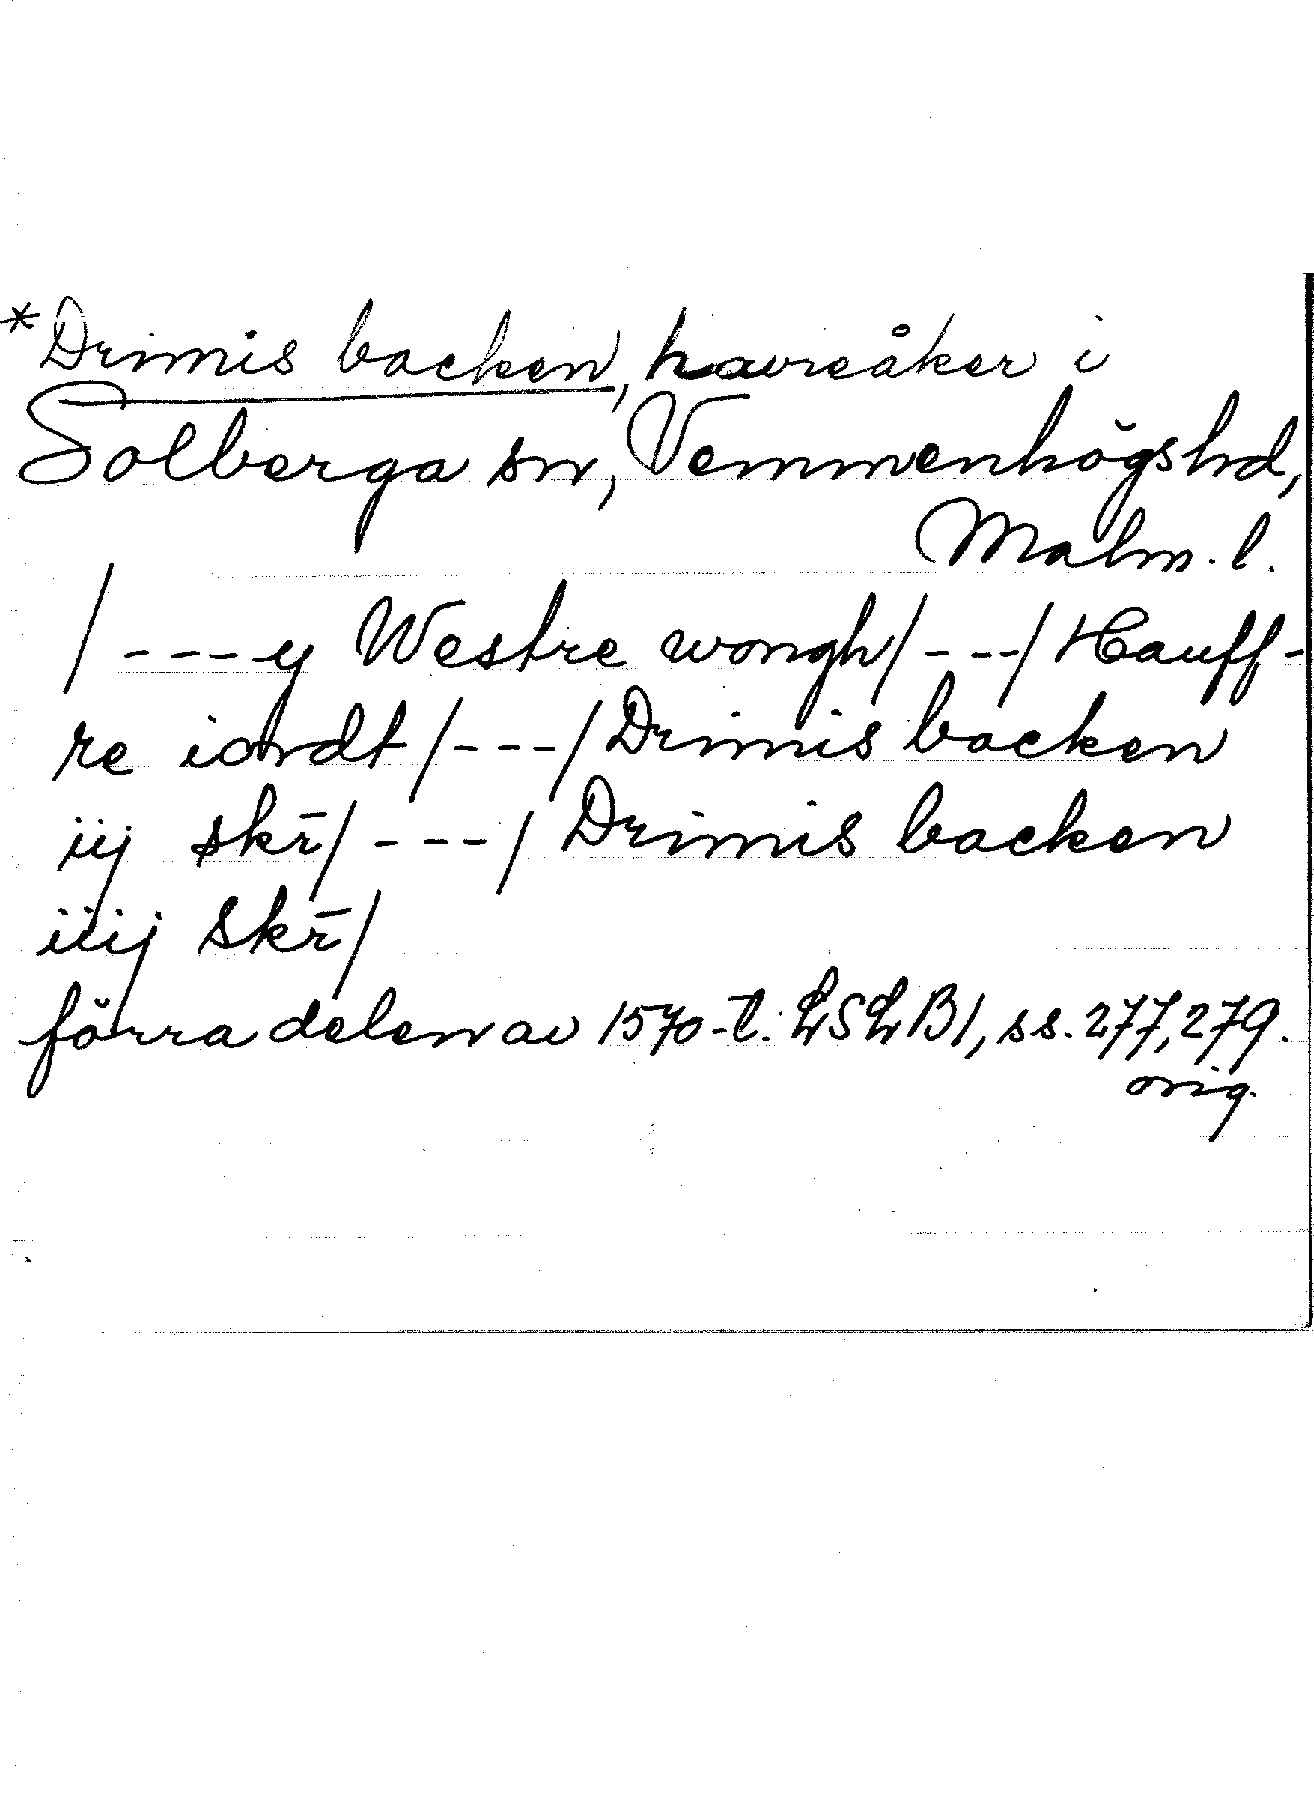 *Drimis backen, havreåker i
Solberga sn, Vemmenhögs hd,
Malm. l.
/---y Westre wongh/---/Hauff-
re iordt/---/Drimis backen
iij skr̄/---/Drimis backen
iiij skr̄/
förra delen av 1570-t. LSLB1, ss. 277, 279.
orig.